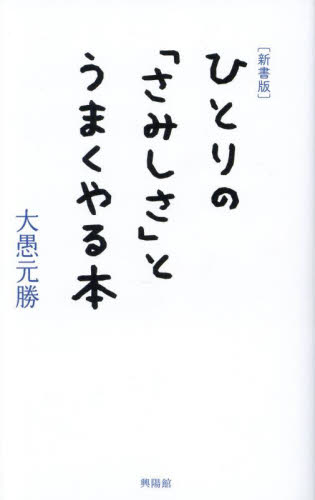 ［新書版］
ひとりの
「さみしさ」と
うまくやる本
大愚元勝
興陽館